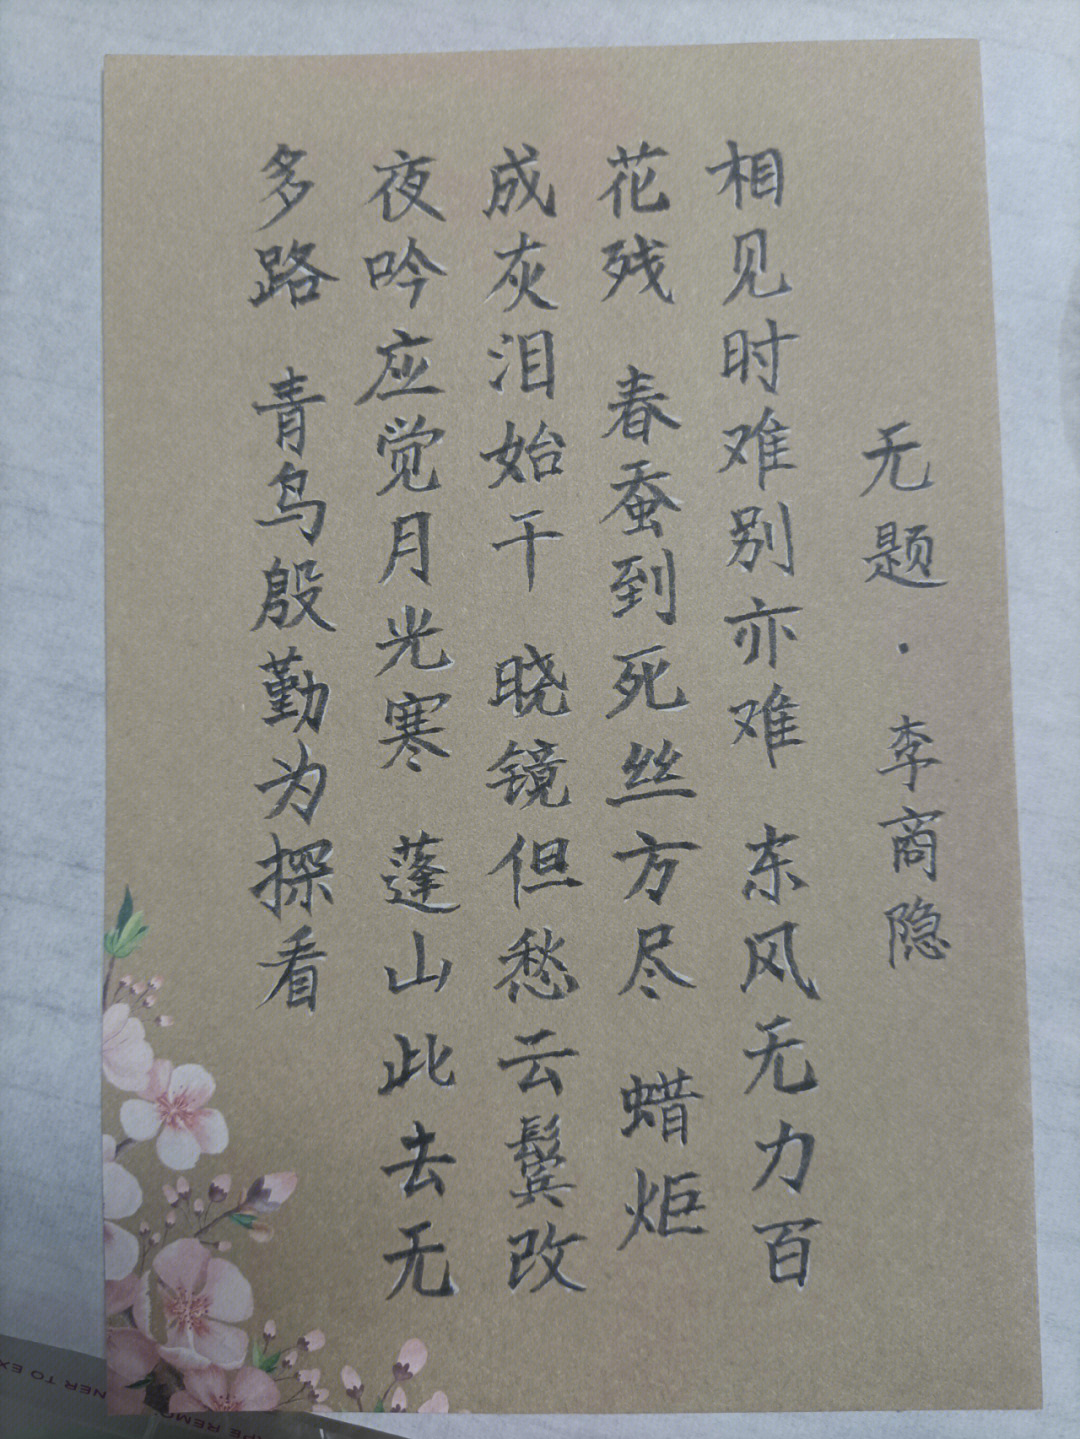 无题·李商隐
相见时难别亦难 东风无力百
花残 春蚕到死丝方尽 蜡炬
成灰泪始干 晓镜但愁云鬓改
夜吟应觉月光寒 蓬山此去无
多路 青鸟殷勤为探看
TO